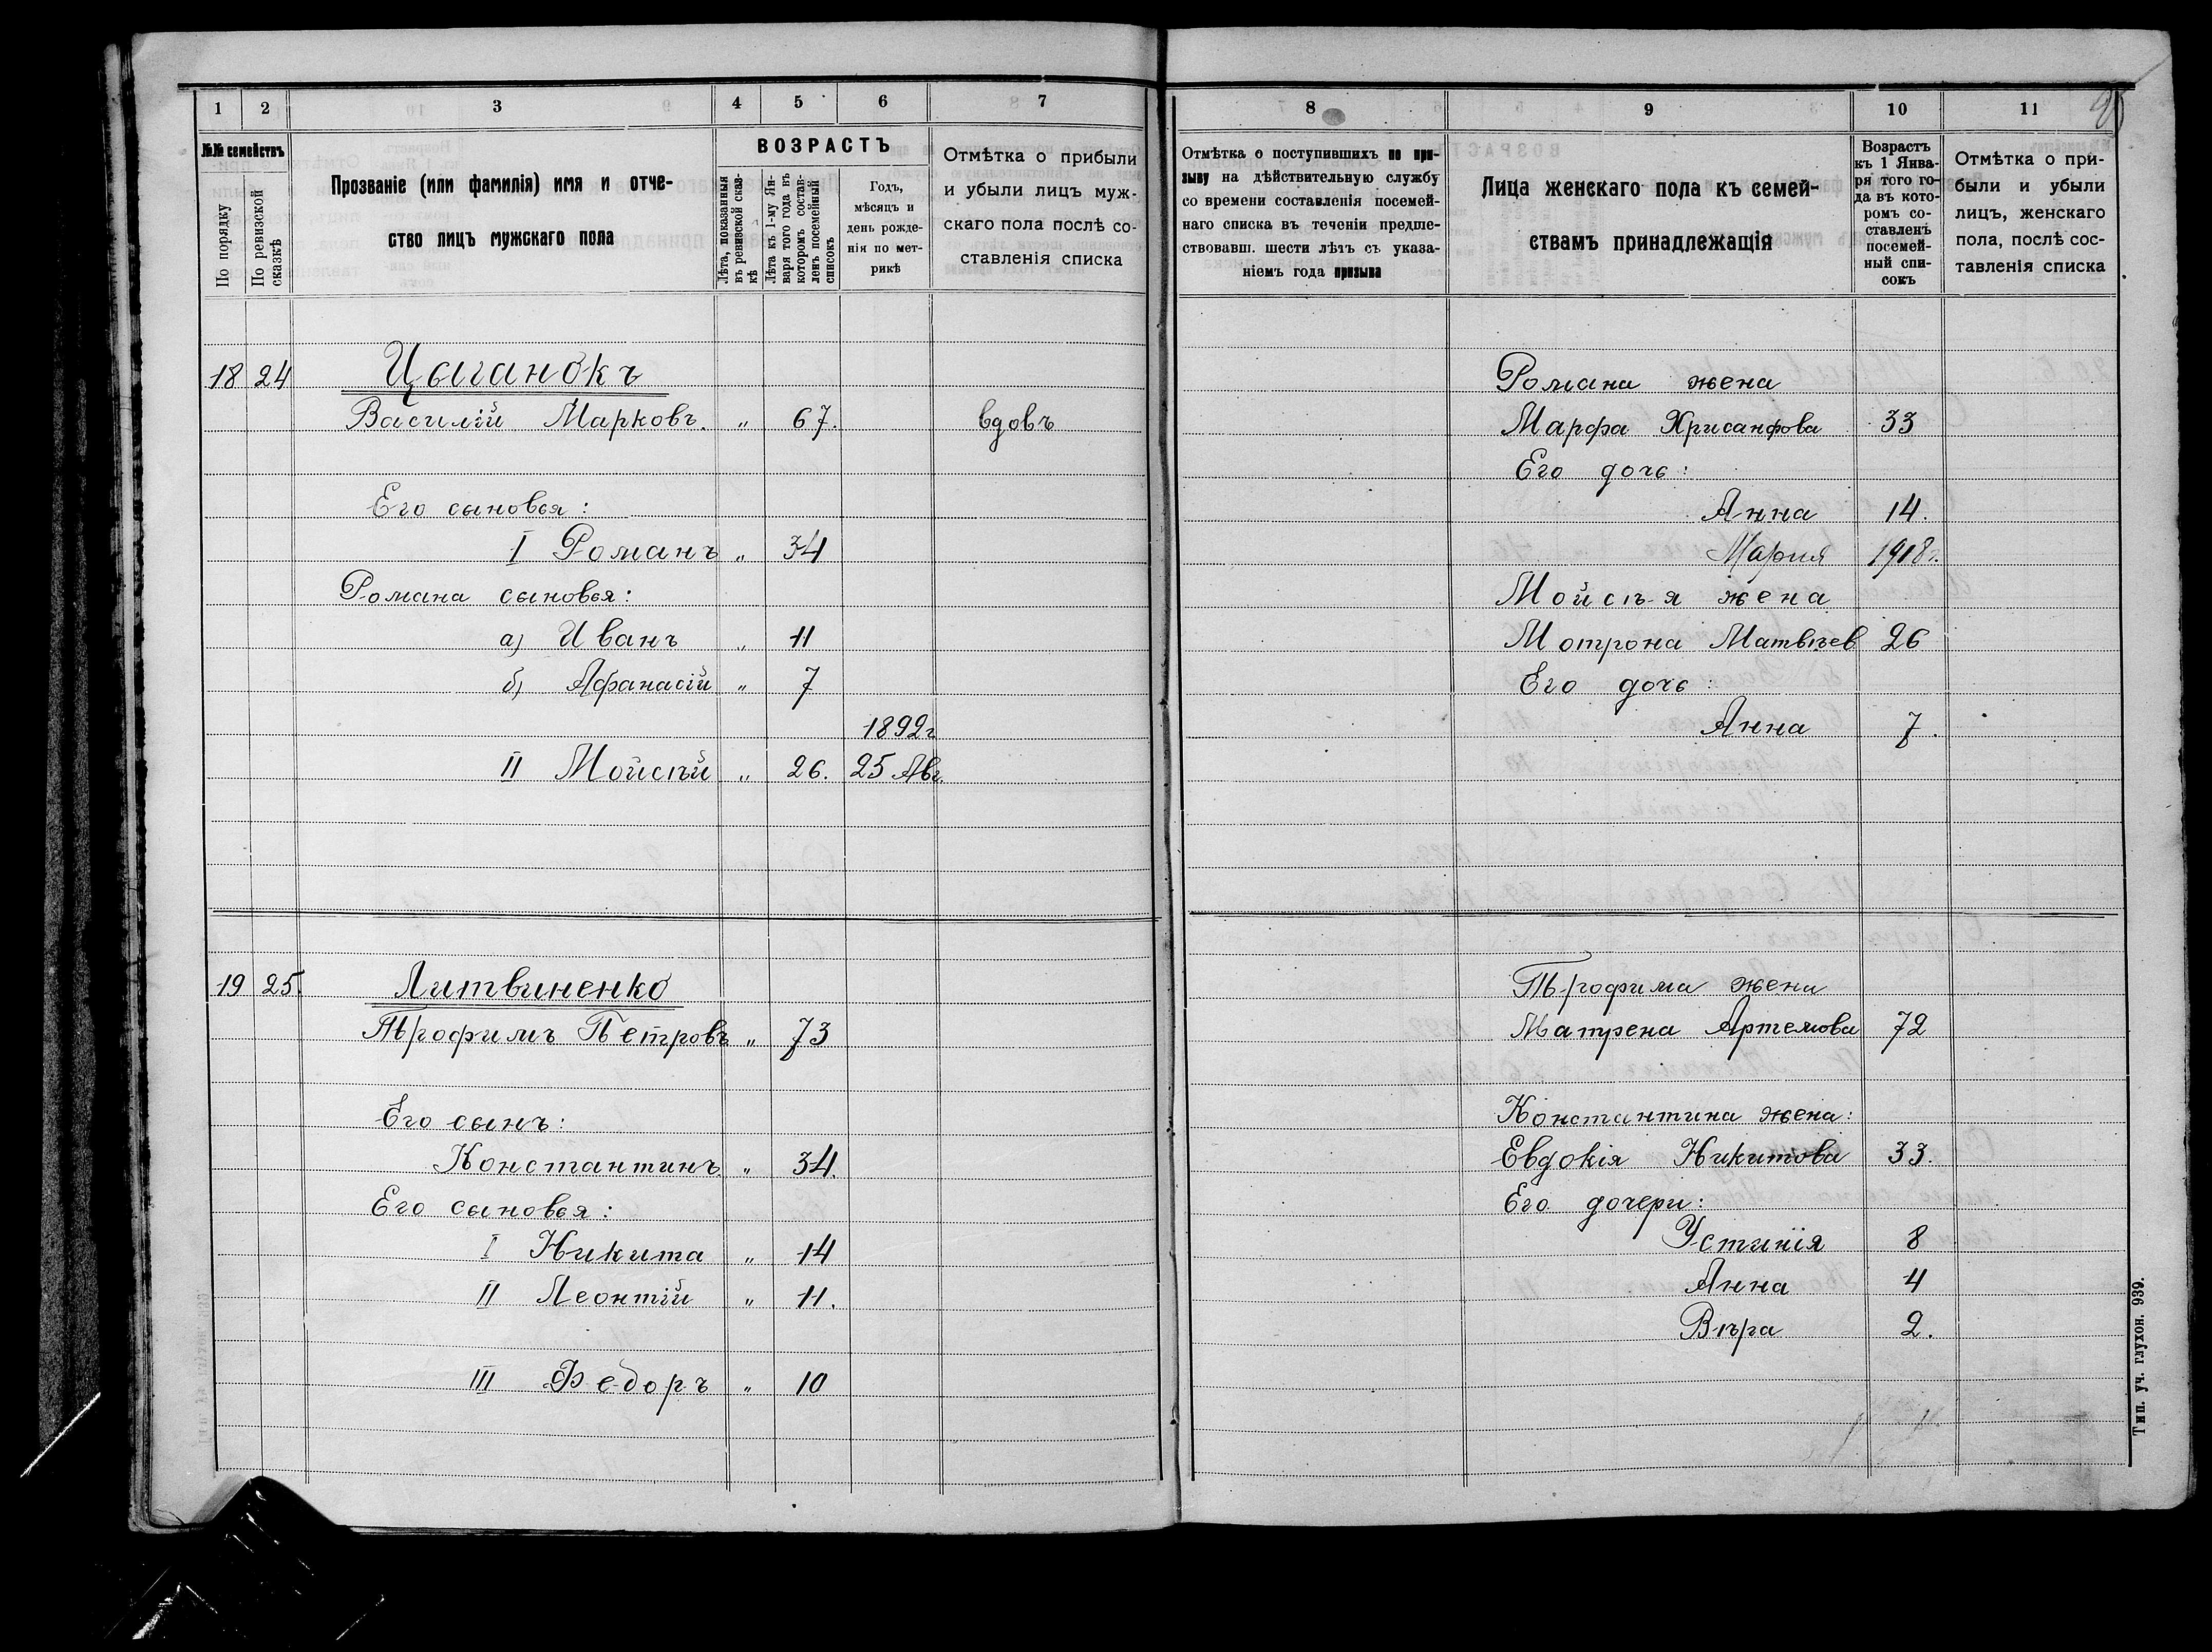 1 2 3 4 5 6 7
№№ семействъ
По порядку
По ревизской сказкѣ
Прозваніе (или фамилія) имя и отче-
ство лицъ мужскаго пола
ВОЗРАСТЪ
Лѣта, показанныя
въ ревизской сказ-
кѣ
Лѣта къ 1-му Ян-
варя того года въ
которомъ состав-
ленъ посемейный
списокъ
Годъ,
мѣсяцъ и
день рожде-
нія по мет-
рикѣ
Отмѣтка о прибыли
и убыли лицъ муж-
скаго пола послѣ со-
ставленія списка
18 24 Цыганокъ
Василій Марковъ. „ 67. вдовъ
Его сыновья:
I Романъ „ 34
Романа сыновья:
а) Иванъ „ 11
б) Афанасій „ 7
1892г
II Мойсѣй „ 26. 25 Авг.
19 25. Литвиненко
Трофимъ Петровъ „ 73
Его сынъ:
Константинъ „ 34.
Его сыновья:
I Никита „ 14
II Леонтій „ 11.
III Федоръ „ 10
8 9 10 11
Отмѣтка о поступившихъ по при-
зыву на дѣйствительную службу
со времени составленія посемей-
наго списка въ теченіи предше-
ствовавш. шести лѣтъ съ указа-
ніемъ года призыва
Лица женскаго пола къ семей-
ствамъ принадлежащія
Возрастъ
къ 1 Янва-
ря того го-
да въ кото-
ромъ со-
ставленъ
посемей-
ный спи-
сокъ
Отмѣтка о при-
были и убыли
лицъ, женскаго
пола, послѣ сос-
тавленія списка
Романа жена
Марфа Хрисанфова 33
Его дочь:
Анна 14.
Мария 1918г.
Мойсѣя жена
Мотрона Матвѣев 26
Его дочь:
Анна 7.
Трофима жена
Матрена Артемова 72
Константина жена:
Евдокія Никитова 33.
Его дочери:
Устинія 8
Анна 4
Вѣра 2.
Тип. уч. глухон. 939.